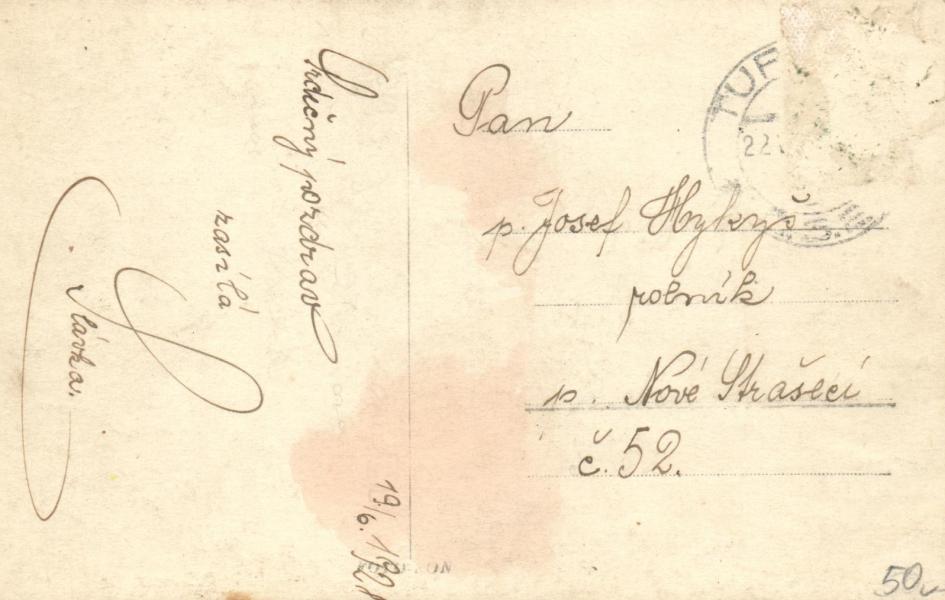 Srdečný pozdrav
zasílá
Slávka.
19/6. 192
Pan
p. Josef Hykyš
rolník
p. Nové Strašecí
č. 52.
TUF
22
50